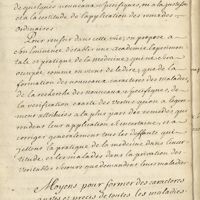 de quelques nouveaux spécifiques, ni à la justesse
et à la certitude de l'application des remèdes
ordinaires.
Pour réussir dans cette vüe, on propose à
Son Eminence d'établir une académie la pour
tale, et pratique de la medecine, qui sera
occupée, comme on vient de le dire, que de la
formation des nouveaux caractères des maladies,
de la recherche des nouveaux spécifiques, et de
la verification exacte des vertus qu'on a légere-
ment attribuées à la plus part des remèdes qui
rendent leur application si incertaine, et a
corriger généralement tous les deffauts qui
jettent la pratique de la medecine dans l'incer-
titude, et les malades dans la privation des
veritables secours que demandent leurs maladies.
Moyens pour former des caractères
et precis de toutes les maladies.